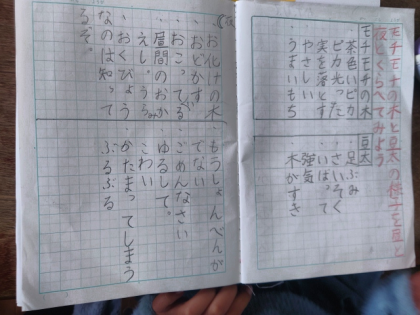 モチモチの木と豆太の様子を昼と
夜とくらべてみよう
モチモチの木
・茶色いピカ
ピカ光った
・実を落とす
・やさしい
・うまいもち
豆太
・足ぶみ
・さいそく
・いばって
・強気
・木がすき
・お化けの木
・おどかす
・おこってる
・昼間のお
・おくびょう
なのは知って
るぞ。
・もうしょんべんが
でない
・ごめんなさい
・ゆるして。
・こわい
・かたまってしまう
・ぶるぶる